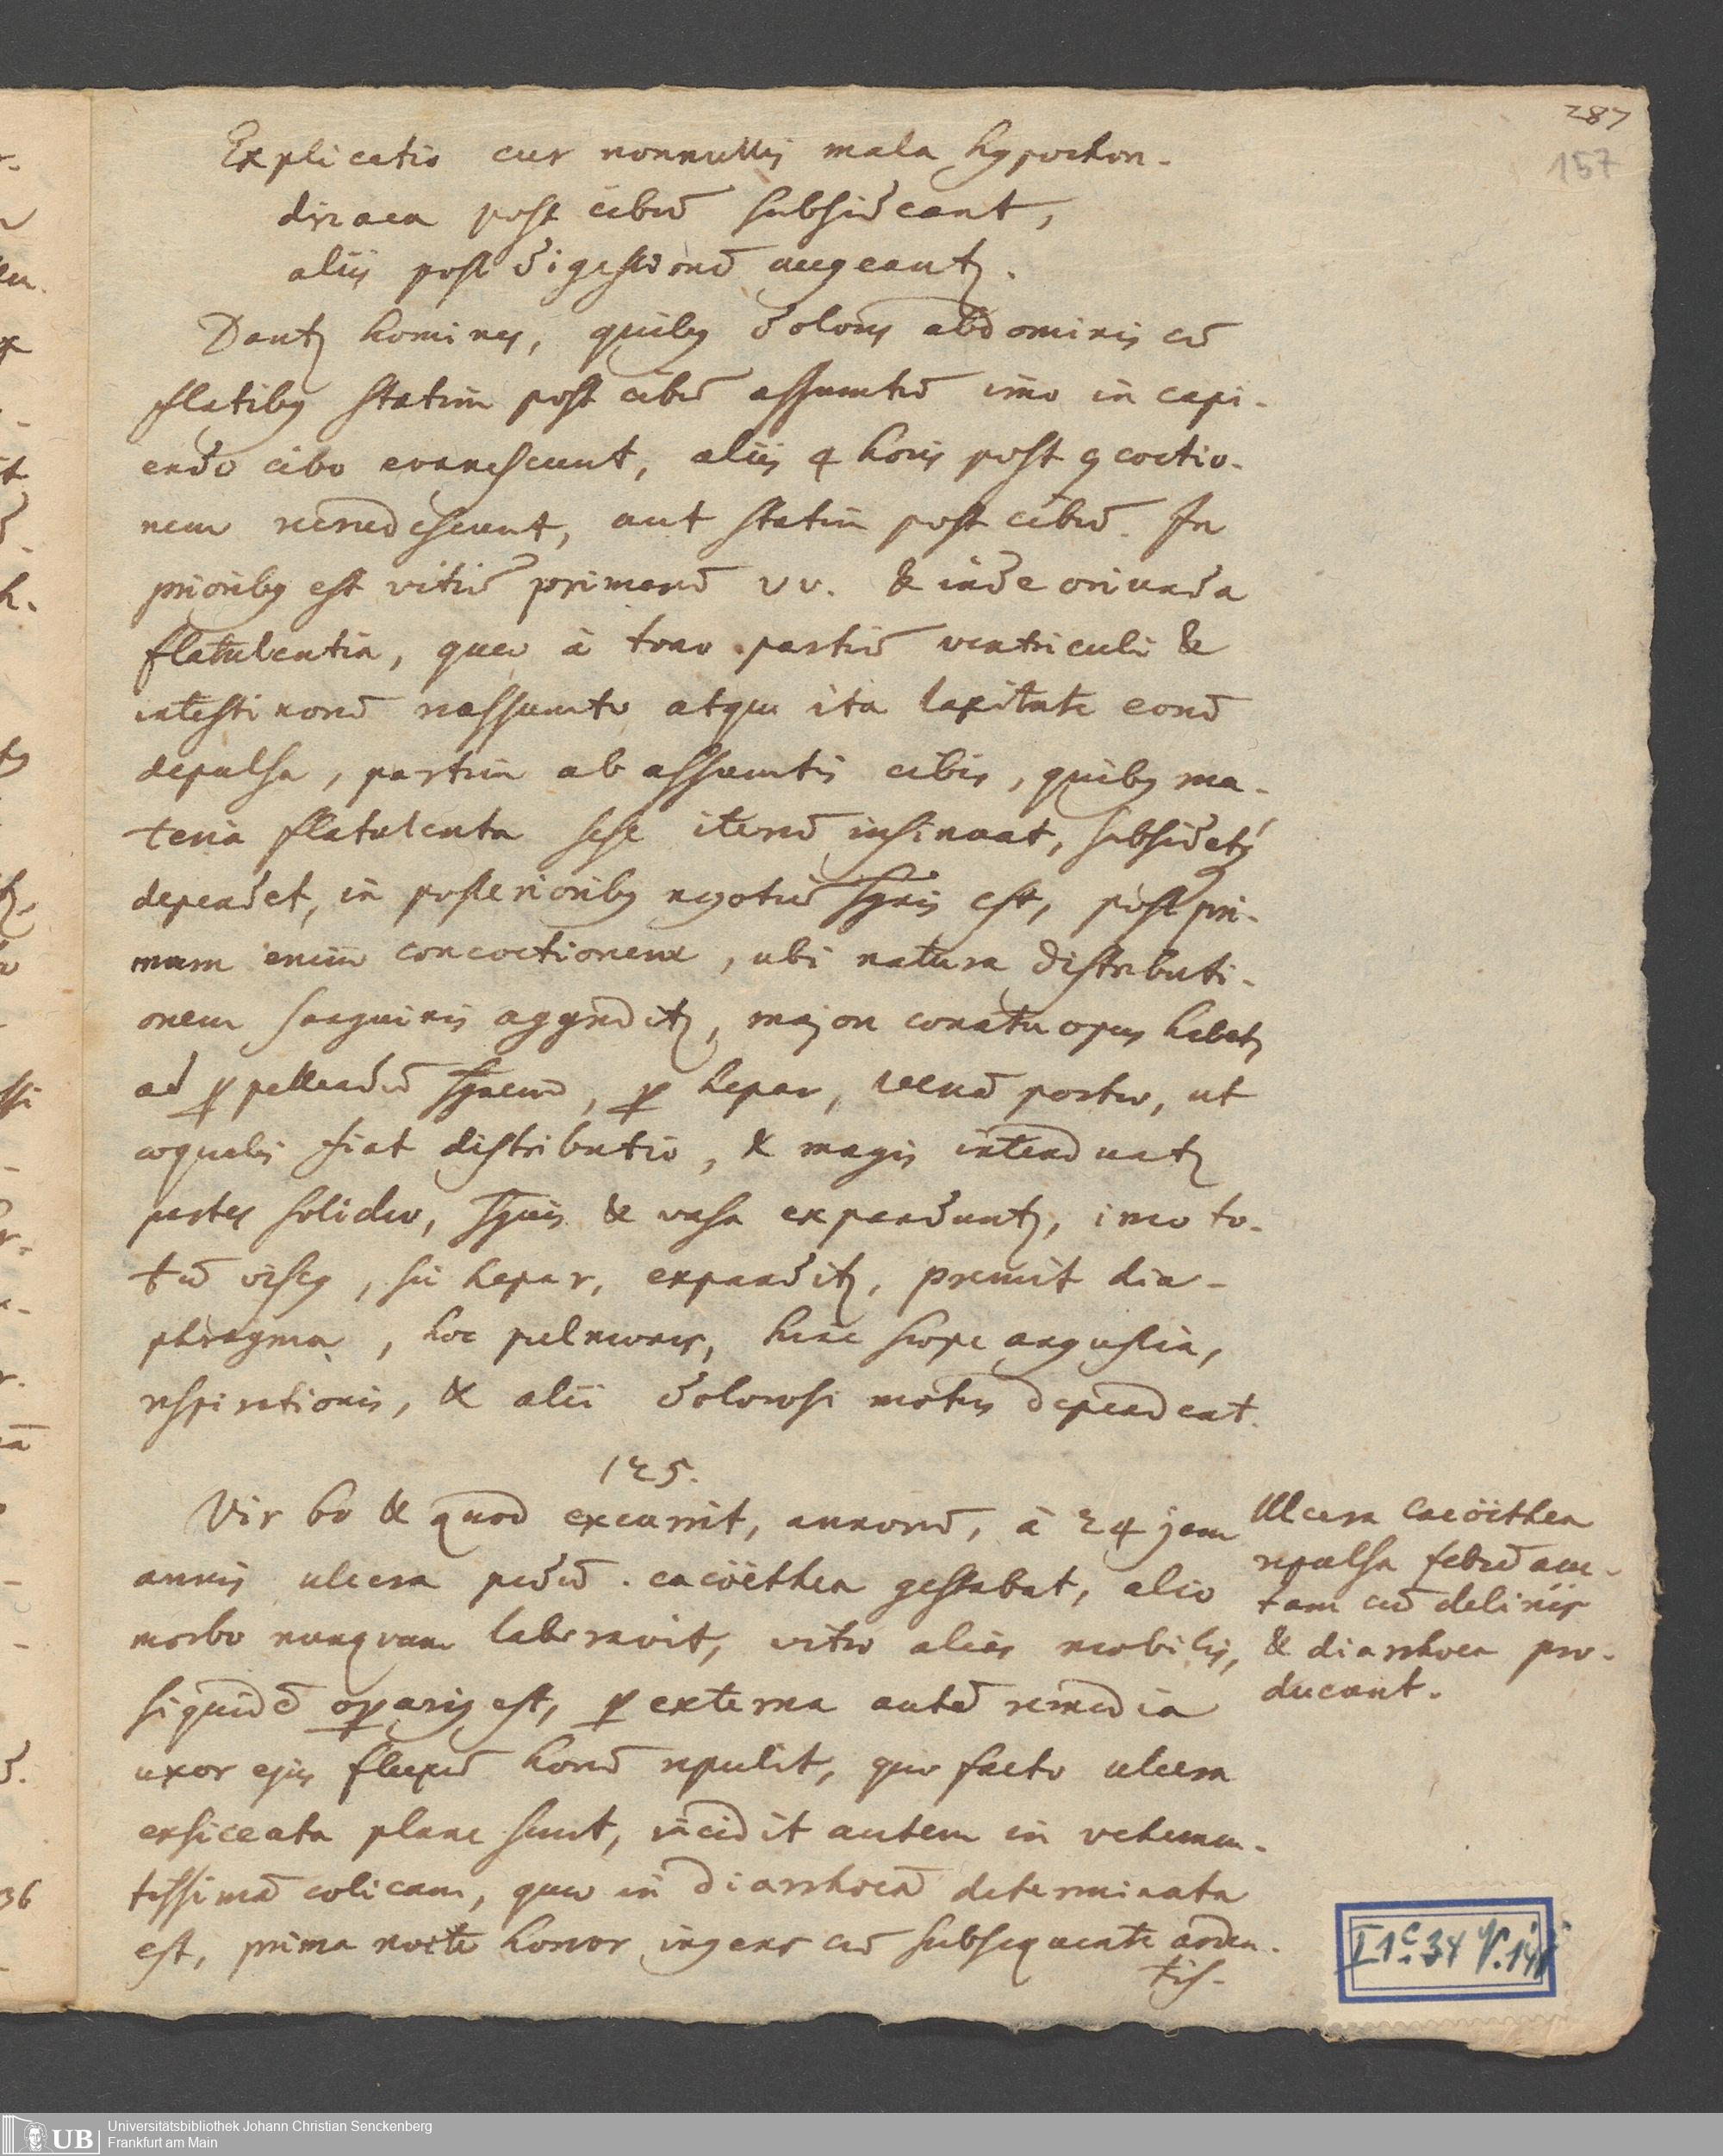 287
157
Explicatio cur nonnullis mala hypochon-
driaca post cibū subsideant,
aliis post digestionē augeantꝫ.
Dantꝫ homines, quibꝫ dolores abdominis cū
flatibꝫ statim post cibū assumtū imo in capi-
endo cibo evanescunt, aliis 4 horis post ꝯcoctio-
nem recrudescunt, aut statim post cibū. In
prioribꝫ est vitiū primarū vv. & inde oriunda
flatulentia, quae à tono partiū ventriculi &
intestinorū reassumto atque ita laxitate eorū
depulsa, partim ab assumtis cibis, quibꝫ ma-
teria flatulenta sese iterū insinuat, subsidet,
dependet, in posterioribꝫ negotiū sgnis est, post pri-
mam enim concoctionem, ubi natura distributi-
onem sanguinis aggreditꝫ, majore conatu opus habet
ad ꝓpellendū sgnem, ꝑ hepar, venā portae, ut
aequalis fiat distributio, & magis intenduntꝫ
partes solidae, sgnis & vasa expanduntꝫ, imo to-
tū viscꝫ, sū hepar, expanditꝫ, premit dia-
phragma, hoc pulmones, hinc saepe angustia,
respirationis, & alii dolorosi motus dependent.
125.
Vir 60 & quod excurrit, annorū, à 24 jam
annis ulcera pedū cacoëthea gestabat, alio
morbo nunquam laboravit, vitae aliàs mobilis,
siquidē oꝑariꝫ est, ꝑ externa autē remedia
uxor ejus fluxū horū repulit, quo facto ulcera
exsiccata plane sunt, incidit autem in vehemen-
tissimā colicam, quae in diarrhoeā determinata
est, prima nocte horror ingens cū subsequente arden-
tis-
Ulcera cacöethea
repulsa febrē acu-
tam cū deliriis
& diarrhoea pro-
ducunt.
36
UB
Universitätsbibliothek Johann Christian Senckenberg
Frankfurt am Main